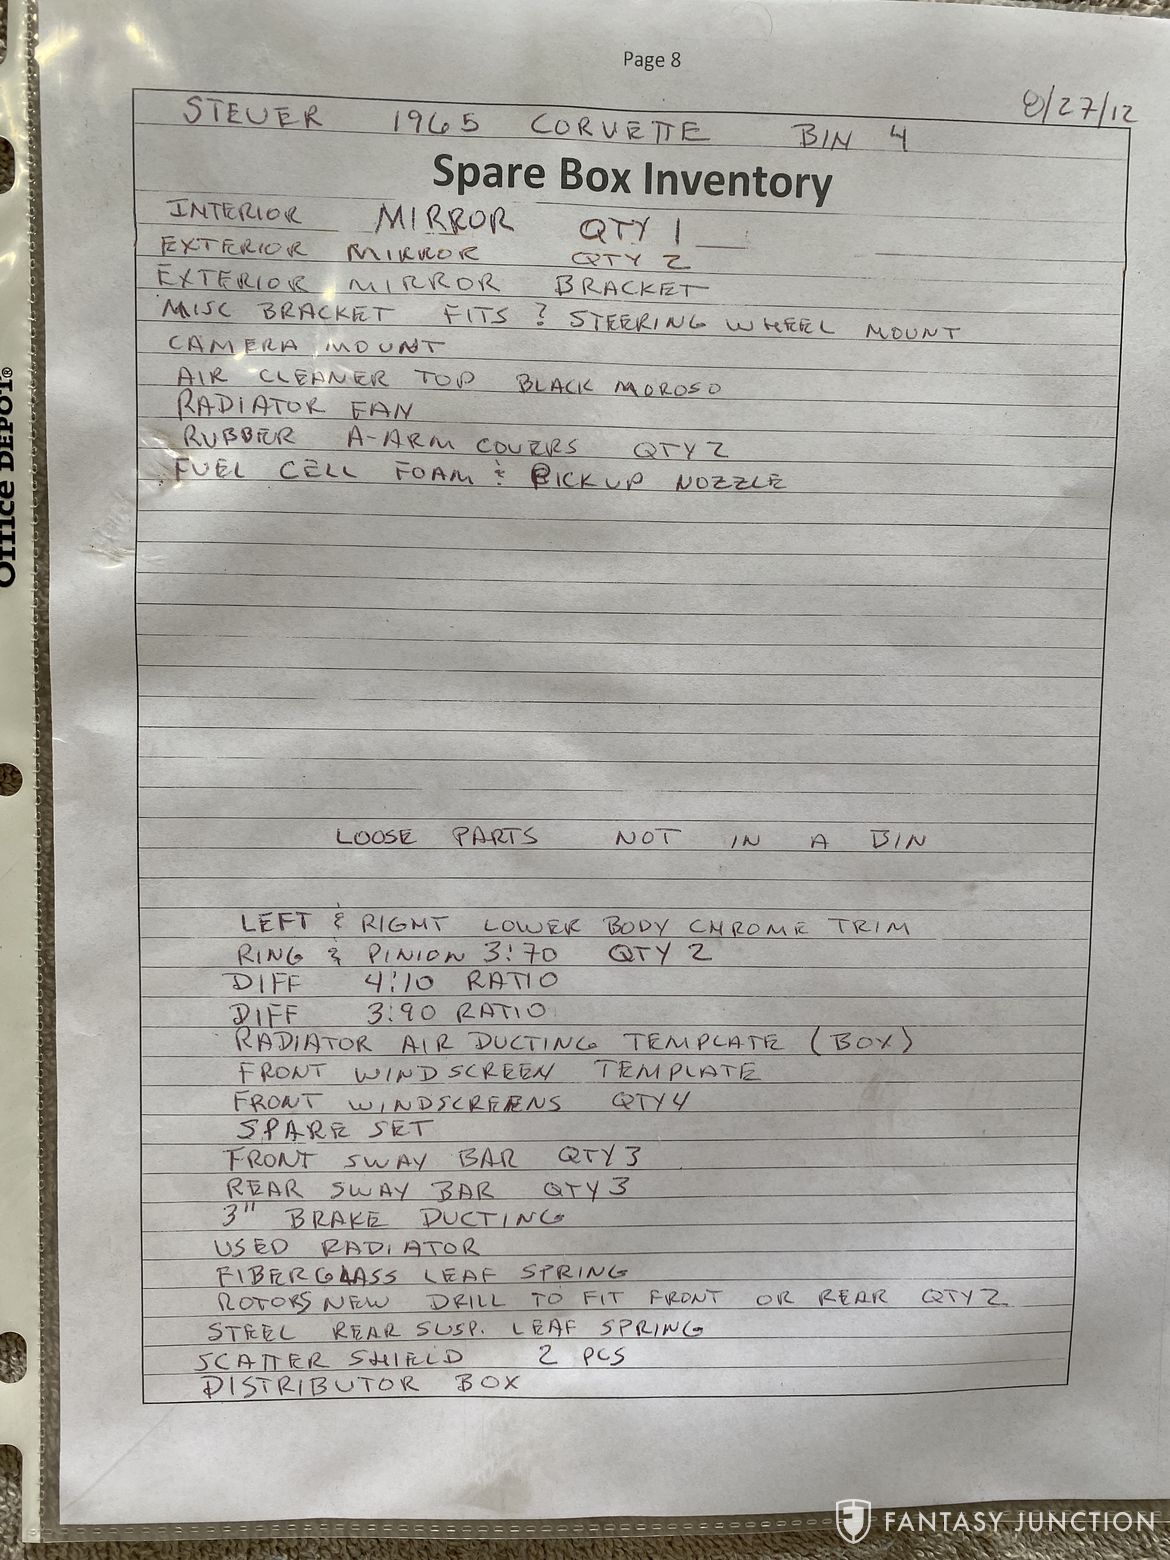 Page 8
8/27/12
STEUER 1965 CORVETTE BIN 4
Spare Box Inventory
INTERIOR MIRROR QTY 1
EXTERIOR MIRROR QTY 2
EXTERIOR MIRROR BRACKET
MISC BRACKET FITS ? STEERING WHEEL MOUNT
CAMERA MOUNT
AIR CLEANER TOP BLACK MOROSO
RADIATOR FAN
RUBBER A-ARM COVERS QTY 2
FUEL CELL FOAM & PICKUP NOZZLE
LOOSE PARTS NOT IN A BIN
LEFT & RIGHT LOWER BODY CHROME TRIM
RING & PINION 3:70 QTY 2
DIFF 4:10 RATIO
DIFF 3:90 RATIO
RADIATOR AIR DUCTING TEMPLATE (BOX)
FRONT WINDSCREEN TEMPLATE
FRONT WINDSCREENS QTY 4
SPARE SET
FRONT SWAY BAR QTY 3
REAR SWAY BAR QTY 3
3" BRAKE DUCTING
USED RADIATOR
FIBERGLASS LEAF SPRING
ROTORS NEW DRILL TO FIT FRONT OR REAR QTY 2
STEEL REAR SUSP. LEAF SPRING
SCATTER SHIELD 2 PCS
DISTRIBUTOR BOX
Office DEPOT®
FANTASY JUNCTION